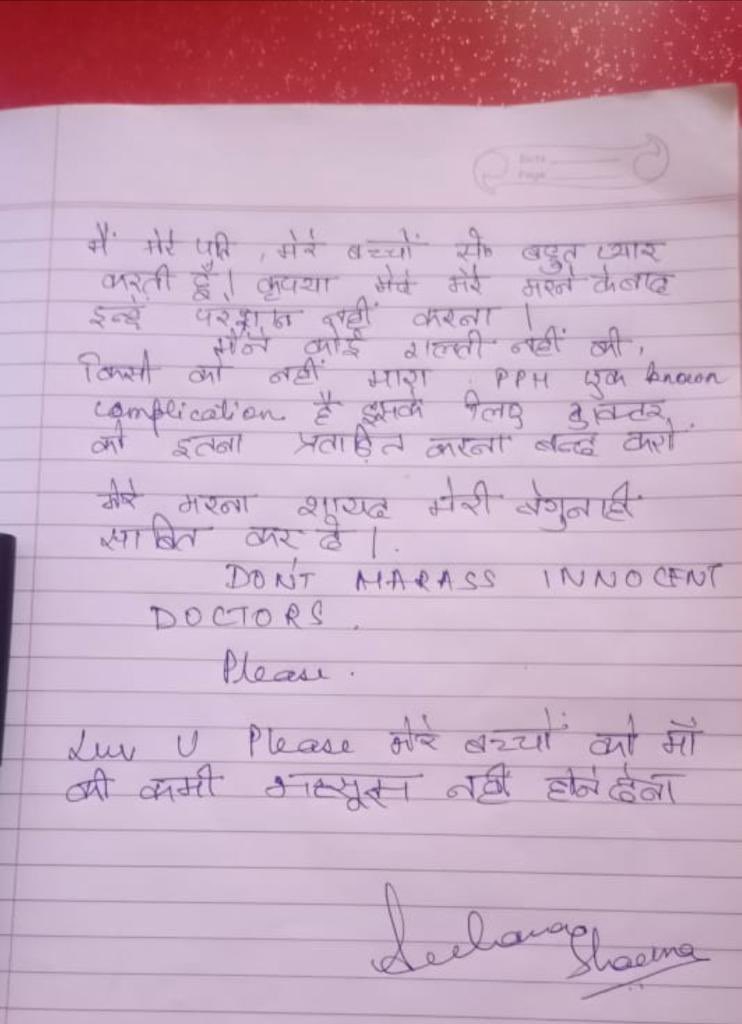 Date
Page
मैं मेरे पति, मेरे बच्चों से बहुत प्यार
करती हूँ। कृपया मेरे मेरे मरने के बाद
इन्हें परेशान नहीं करना।
मैंने कोई गलती नहीं की,
किसी को नहीं मारा. PPH एक known
complication है इसके लिए डॉक्टर
को इतना प्रताड़ित करना बन्द करो
मेरे मरना शायद मेरी बेगुनाही
साबित कर दे।.
DON'T HARASS INNOCENT
DOCTORS.
Please.
Luv U Please मेरे बच्चों को माँ
की कमी महसूस नहीं होने देना
Sharma